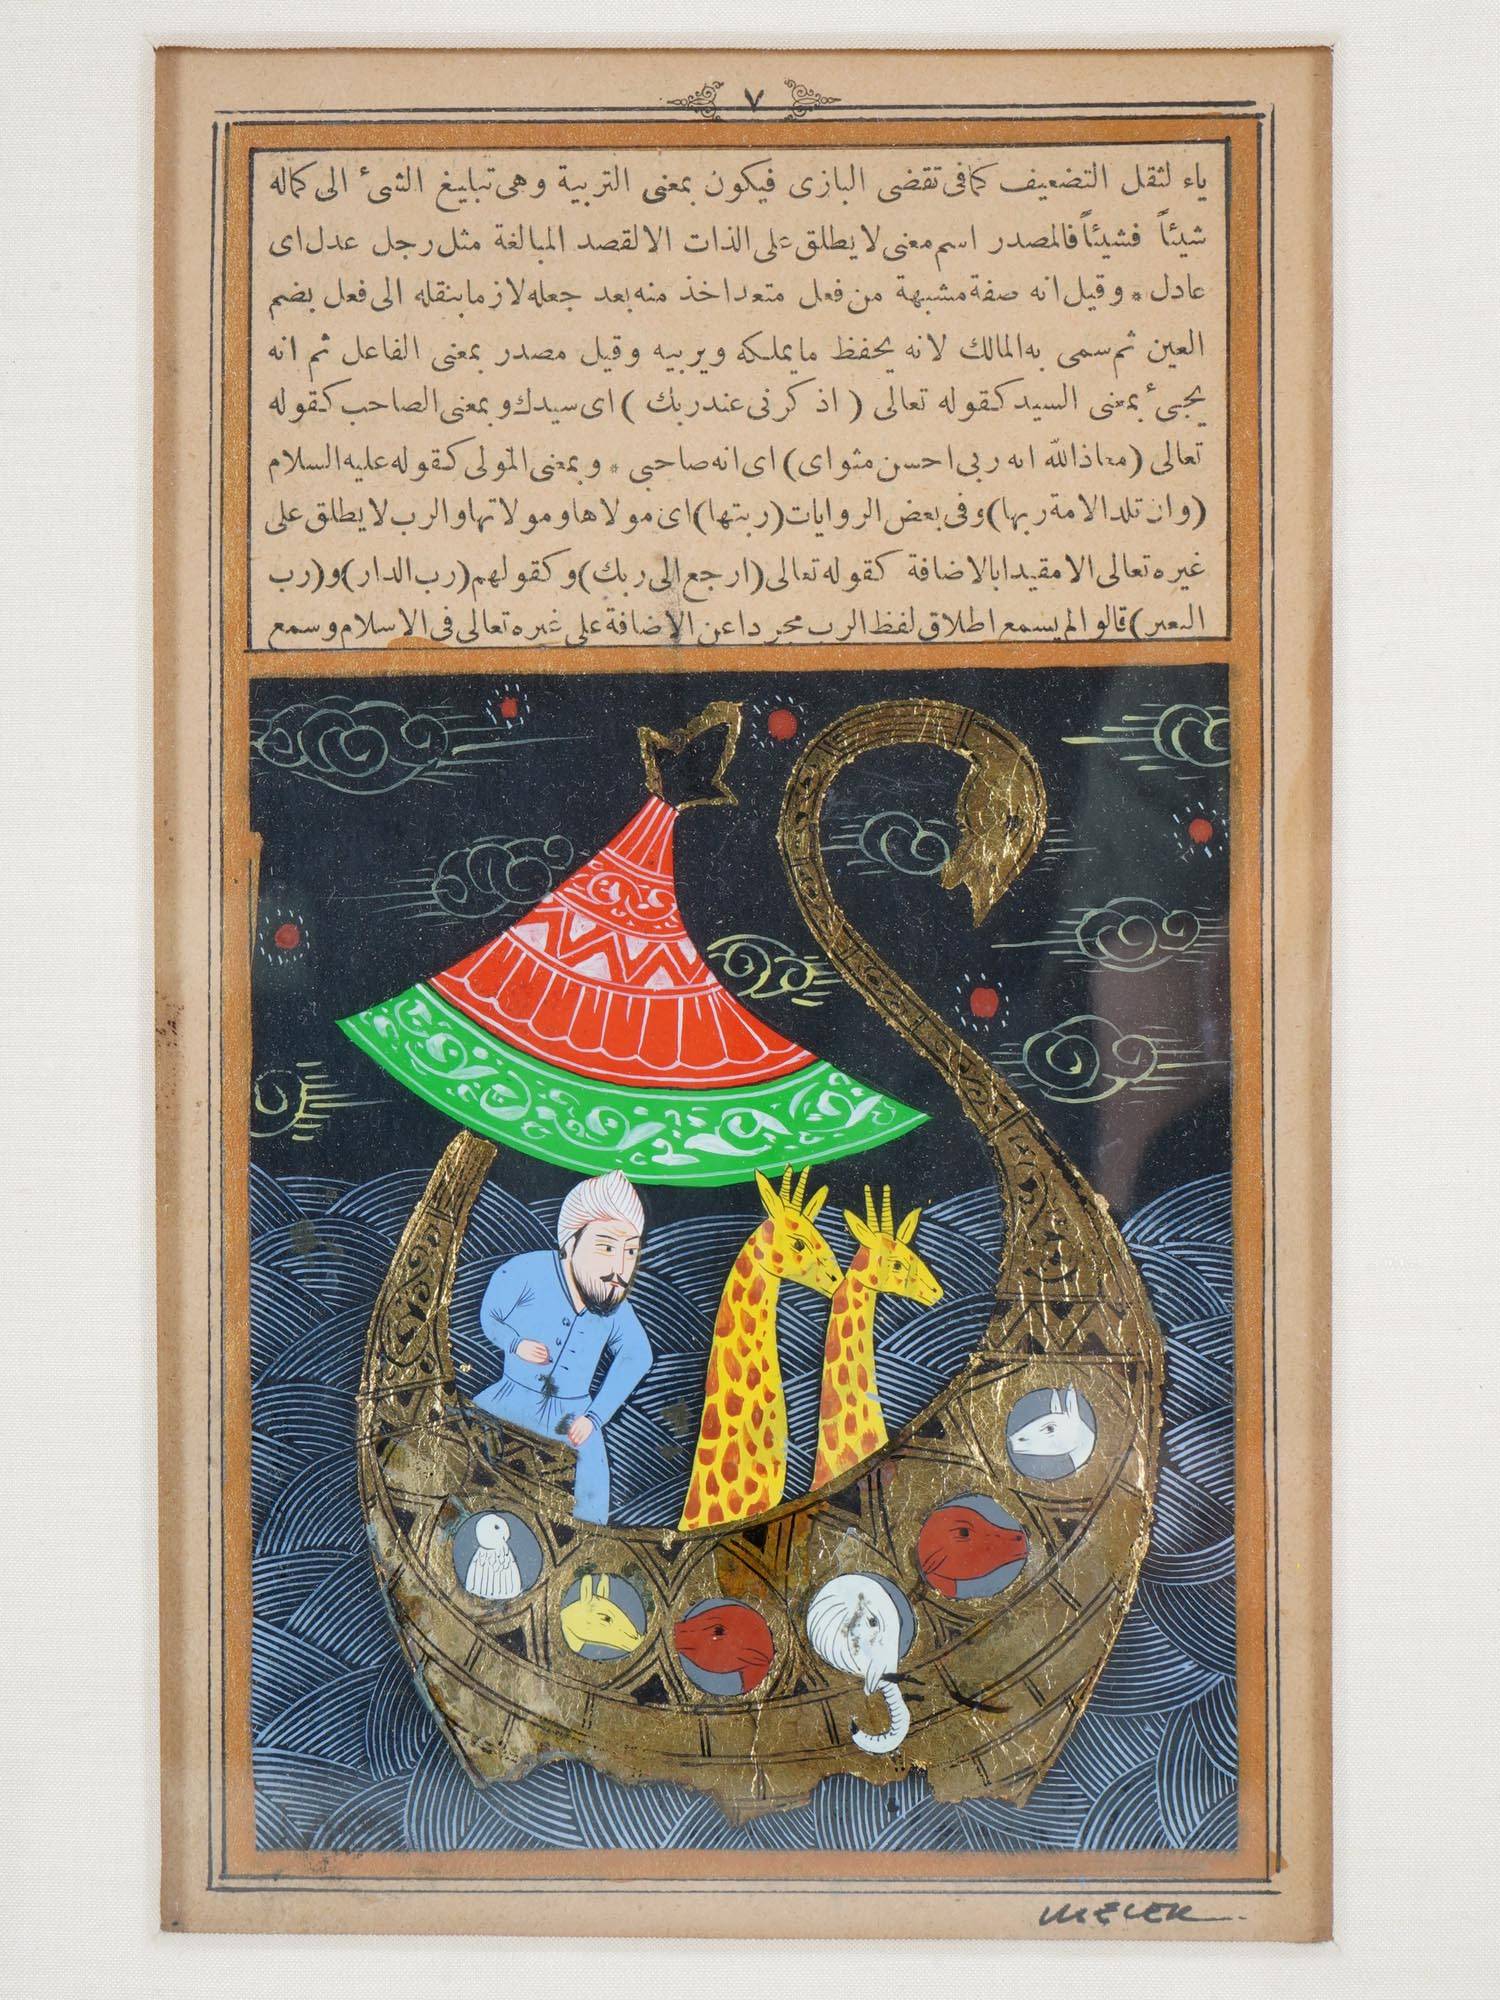 ٧
ياء لثقل التضعيف كما فى تقضى البازى فيكون بمعنى التربية وهى تبليغ الشئ الى كماله
شيئاً فشيئاً فالمصدر اسم معنى لا يطلق على الذات الا لقصد المبالغة مثل رجل عدل اى
عادل * وقيل انه صفة مشبهة من فعل متعد اخذ منه بعد جعله لازما بنقله الى فعل بضم
العين ثم سمى به المالك لانه يحفظ ما يملكه ويربيه وقيل مصدر بمعنى الفاعل ثم انه
يجئ بمعنى السيد كقوله تعالى ( اذكرنى عند ربك ) اى سيدك و بمعنى الصاحب كقوله
تعالى (معاذ الله انه ربى احسن مثواى) اى انه صاحبى * و بمعنى المولى كقوله عليه السلام
(وان تلد الامة ربها) وفى بعض الروايات (ربتها) اى مولاها ومولاتها والرب لا يطلق على
غيره تعالى الا مقيدا بالاضافة كقوله تعالى (ارجع الى ربك) وكقولهم (رب الدار) و (رب
البعير) قالوا لم يسمع اطلاق لفظ الرب مجردا عن الاضافة على غيره تعالى فى الاسلام وسمع
MELEK